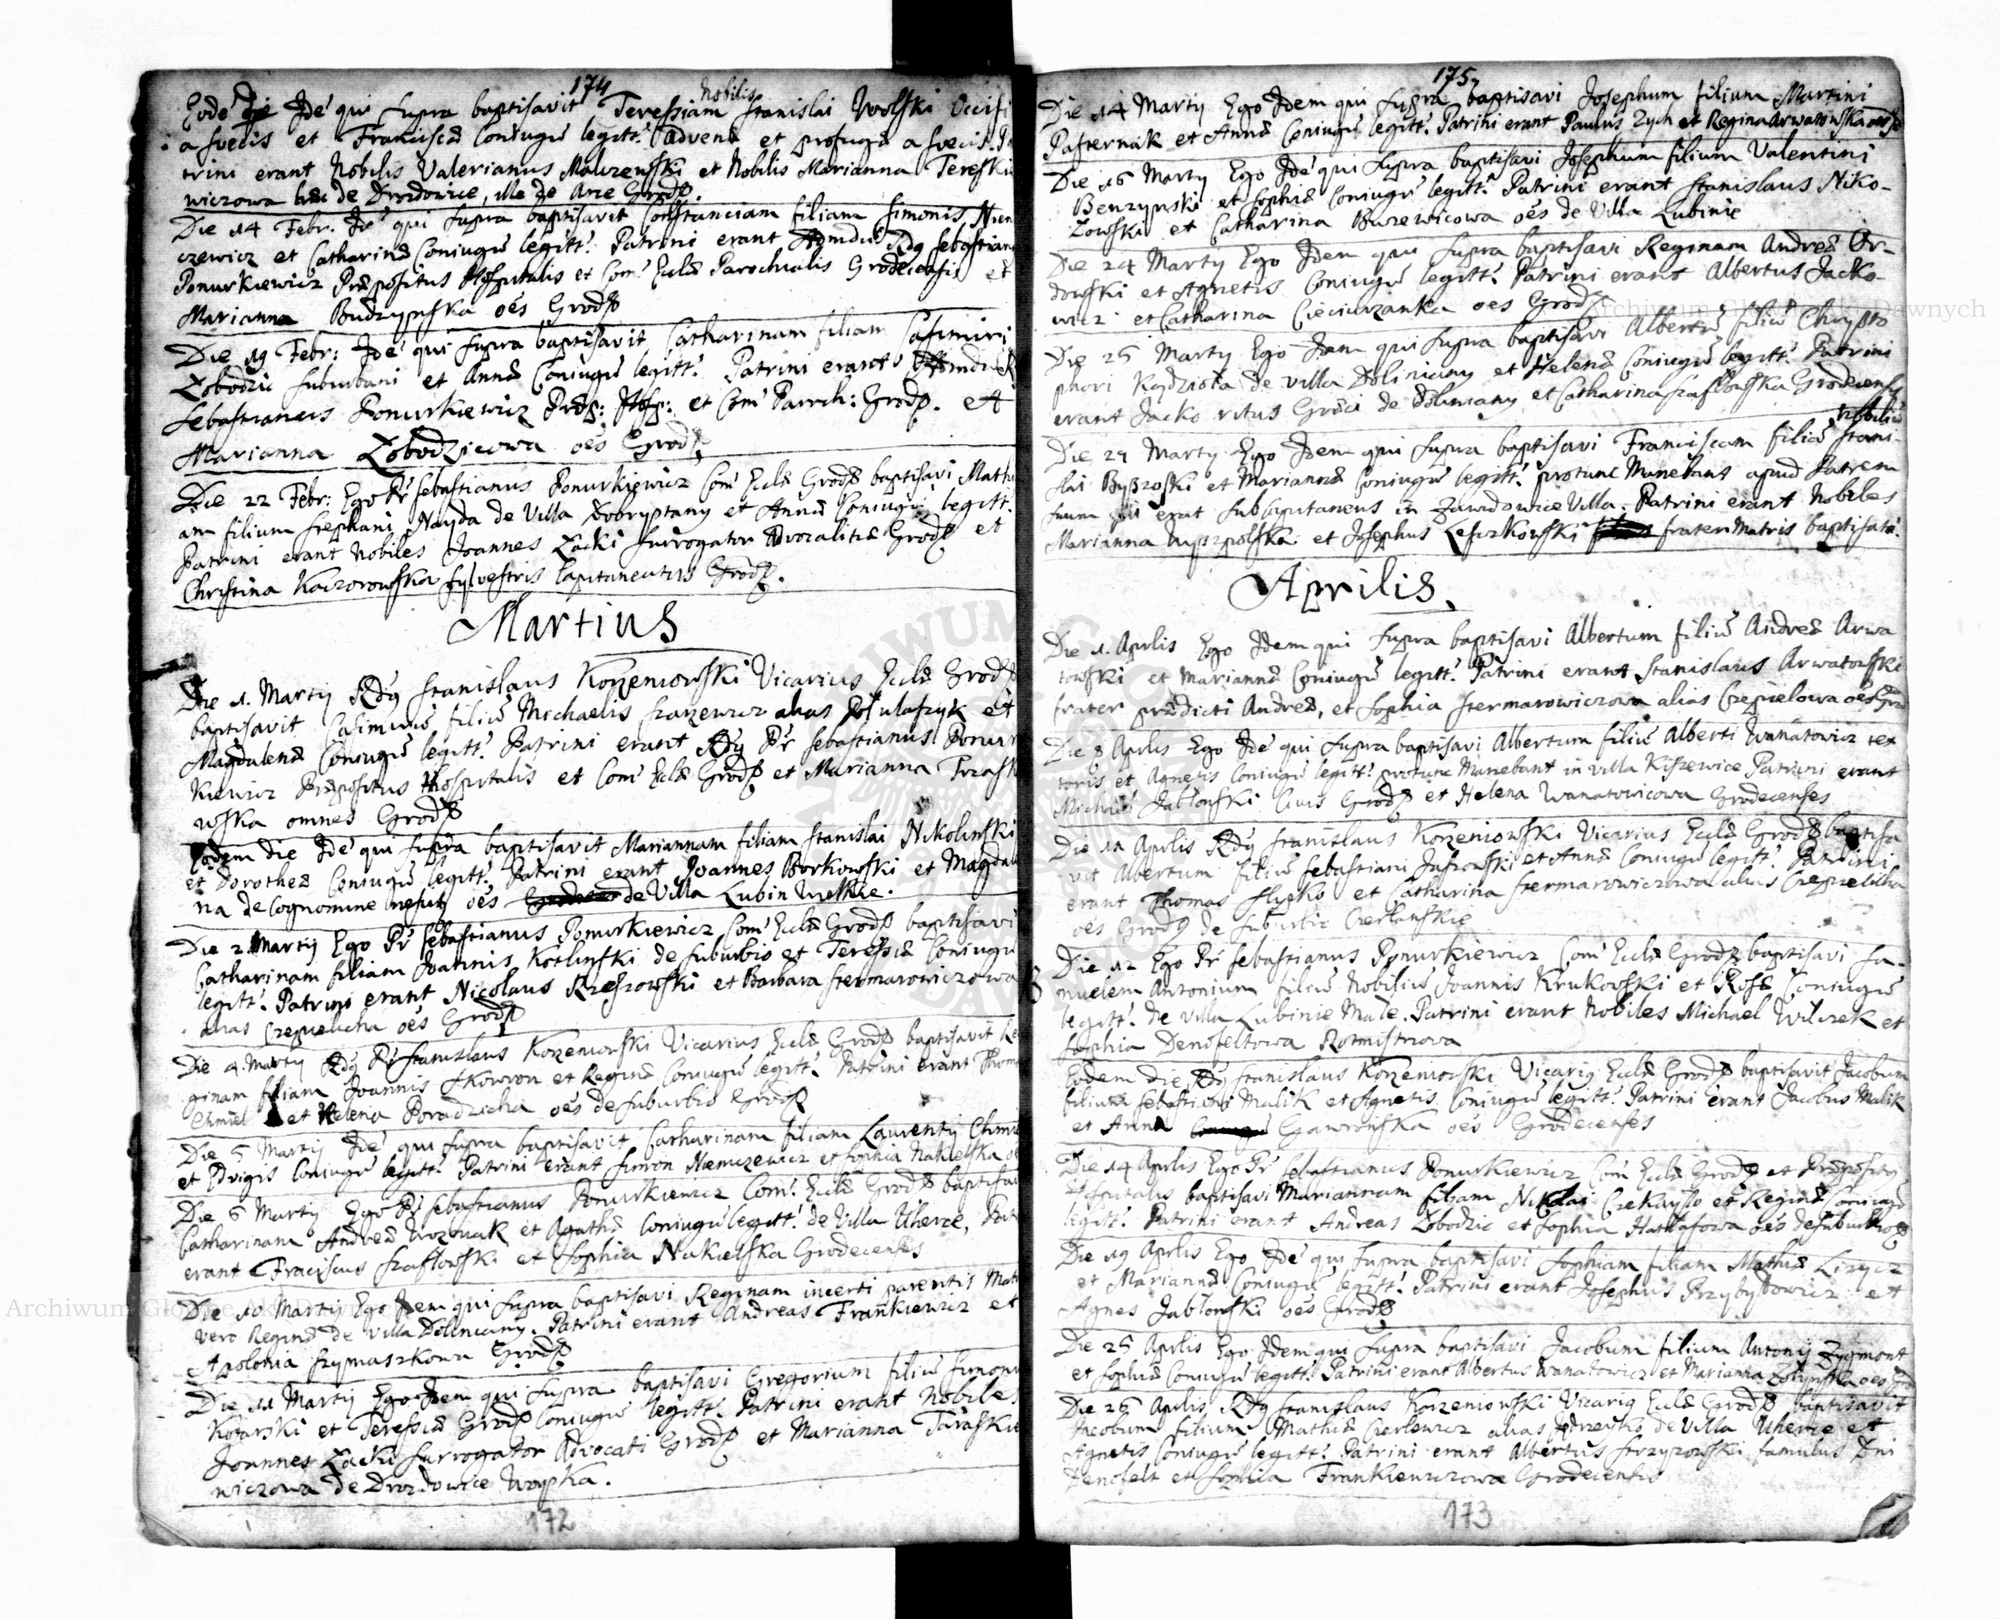 174
Eodē die Idē qui supra baptisavit Teressiam nobilis Stanislai Wolski occisi
a svecis et Franciscæ Coniugū legitt: advenæ et profugæ a svecis. Pa
trini erant Nobilis Valerianus Malizewski et Nobilis Marianna Tereskie
wiczowa hæc de Drozdowice, ille de Arce Grodp.
Die 14 Febr. Idē qui supra baptisavit Constanciam filiam Simonis Niem
czewicz et Catharinæ Coniugū legitt: Patrini erant Admdū Rdg Sebastianus
Ponurkiewicz Præpositus Hospitalis et Com: Eccl: Parochialis Grodecensis et
Marianna Budzynska oēs Grod
Die 19 Febr: Idē qui supra baptisavit Catharinam filiam Casimiri
Łobodzic suburbani et Annæ Coniugū legitt: Patrini erant Admdū R
Sebastianus Ponurkiewicz Præp: Hosp: et Com Paroch: Grod. et
Marianna Łobodzicowa oēs Grod
Die 22 Febr: Ego Pr Sebastianus Ponurkiewicz Com Eccl: Grod baptisavi Mathi
am filium Stephani Nayda de Villa Dobryptany et Annæ Coniugū legitt.
Patrini erant Nobiles Joannes Łacki Surrogator Advocalitis Grod et
Christina Kaczorowska Sylvestris Capitaneatus Grod.
Martius
Die 1. Martij Rdg Stanislaus Korzeniowski Vicarius Eccl: Grod
baptisavit Casimirū filiū Michaelis Franzewicz alias Postulaszyk et
Magdalenæ Coniugū legitt: Patrini erant Rdg Pr Sebastianus Ponur
kiewicz Præpositus Hospitalis et Com Eccl: Grod et Marianna Trzask
wska omnes Grod
Eodem die Idē qui supra baptisavit Mariannam filiam Stanislai Nikolinski
et Dorotheæ Coniugū legitt: Patrini erant Joannes Borkowski et Magdale
na de Cognomine oēs de Villa Lubin Wielkie.
Die 2. Martij Ego Pr Sebastianus Ponurkiewicz Com Eccl: Grod baptisavi
Catharinam filiam Joannis Kotlinski de Suburbio et Teressiæ Coniugū
legitt: Patrini erant Nicolaus Rzeszowski et Barbara Stermarowiczowa
alias Czepielicha oēs Grod
Die 4. Martij Rdg Pr Stanislaus Korzeniowski Vicarius Eccl: Grod baptisavit Re
ginam filiam Joannis Skowron et Reginæ Coniugū legitt: Patrini erant Thom
Chmiel et Helena Poradzicha oēs de Suburbio Grod
Die 5 Martij Idē qui supra baptisavit Catharinam filiam Laurentij Chmie
et Edvigis Coniugū legitt: Patrini erant Simon Niemczewicz et Sophia Nakielska oēs
Die 6 Martij Ego Pr Sebastianus Ponurkiewicz Com: Eccl: Grod baptisavi
Catharinam Andreæ Wozniak et Agathæ Coniugū legitt: de Villa Uherce, Patr
erant Franciscus Szaflowski et Sophia Nakielska Grodecenses
Die 10 Martij Ego Idem qui supra baptisavi Reginam incerti parentis Mat
vero Reginæ de Villa Doliniany. Patrini erant Andreas Frankiewicz et
Apolonia Szymaszkowa Grod
Die 11 Martij Ego Idem qui supra baptisavi Gregorium filiū Simonis
Kotarski et Teressiæ Grod Coniugū legitt: Patrini erant Nobiles
Joannes Łacki Surrogator Advocati Grod et Marianna Taraskie
wiczowa de Drozdowice Woyska.
172
175
Die 14 Martij Ego Idem qui supra baptisavi Josephum filium Martini
Pasternak et Annæ Coniugū legitt: Patrini erant Paulus Zych et Regina Arwatowska oēs
Die 16 Martij Ego Idē qui supra baptisavi Josephum filium Valentini
Benzynski et Sophiæ Coniugū legitt: Patrini erant Stanislaus Niko-
łowski et Catharina Burzewicowa oēs de Villa Lubinie
Die 24 Martij Ego Idem qui supra baptisavi Reginam Andreæ Or-
dowski et Agnetis Coniugū legitt: Patrini erant Albertus Jacko-
wicz et Catharina Cieciurzanka oēs Grod
Die 25 Martij Ego Idem qui supra baptisavi Albertū filiū Chrysto
phori Kądziola de villa Doliniany et Helenæ Coniugū legitt: Patrini
erant Jacko ritus Græci de Doliniany et Catharina Szaflowska Grodecensis
Die 29 Martij Ego Idem qui supra baptisavi Franciscam filiā nobiliū Stani-
slai Byszoski et Mariannæ Coniugū legitt: protunc Manebant apud Patrem
suum qui erat Subcapitaneus in Zawidowice Villa. Patrini erant Nobiles
Marianna Wyszpolska et Josephus Leszkowski frater Matris baptisatæ.
Aprilis
Die 1. Aprilis Ego Idem qui supra baptisavi Albertum filiū Andreæ Arwa
towski et Mariannæ Coniugū legitt: Patrini erant Stanislaus Arwatowski
frater prædicti Andreæ, et Sophia Stermarowiczowa alias Czepielowa oēs Grod
Die 8 Aprilis Ego Idē qui supra baptisavi Albertum filiū Alberti Wanatowicz tex
toris et Agnetis Coniugū legitt: protunc Manebant in villa Kiszewice Patrini erant
Michael Jabłonski Civis Grod et Helena Wanatowicowa Grodecenses
Die 11 Aprilis Rdg Stanislaus Korzeniowski Vicarius Eccl: Grod baptisa
vit Albertum filiū Sebastiani Jusrowski et Annæ Coniugū legitt: Patrini
erant Thomas Slipko et Catharina Stermarowiczowa alias Czepielicha
oēs Grod de Suburbie Czerlanskie
Die 12 Ego Pr Sebastianus Ponurkiewicz Com Eccl: Grod baptisavi Sa-
muelem Antonium filiū Nobiliū Joannis Krukowski et Rosæ Coniugū
legitt: de villa Lubinie Małe. Patrini erant Nobiles Michael Wilczek et
Sophia Denofeltowa Rotmistrzowa
Eodem die Rdg Stanislaus Korzeniowski Vicarig Eccl: Grod baptisavit Jacobum
filium Sebastiani Malik et Agnetis Coniugū legitt: Patrini erant Jacobus Malik
et Anna Gawronska oēs Grodecenses
Die 14 Aprilis Ego Pr Sebastianus Ponurkiewicz Com Eccl: Grod et Præpositg
Hospitalis baptisavi Mariannam filiam Nicolai Czekayło et Reginæ Coniugū
legitt: Patrini erant Andreas Łobodzic et Sophia Hatłasowa oēs de Suburbio
Die 19 Aprilis Ego Idē qui supra baptisavi Sophiam filiam Mathiæ Lizycz
et Mariannæ Coniugū legitt: Patrini erant Josephus Przybyłowicz et
Agnes Jabłonski oēs Grod
Die 25 Aprilis Ego Idem qui supra baptisavi Jacobum filium Antonij Zygmont
et Sophiæ Coniugū legitt: Patrini erant Albertus Wanatowicz et Marianna Zołynska oēs Grod
Die 26 Aprilis Rdg Stanislaus Korzeniowski Vicarig Eccl: Grod baptisavit
Jacobum filium Mathiæ Czerlewicz alias Petrzycho de Villa Uherce et
Agnetis Coniugū legitt: Patrini erant Albertus Strzyzowski famulus Dni
Denofelt et Sophia Frankiewiczowa Grodecensis
173
Archiwum Główne Akt Dawnych